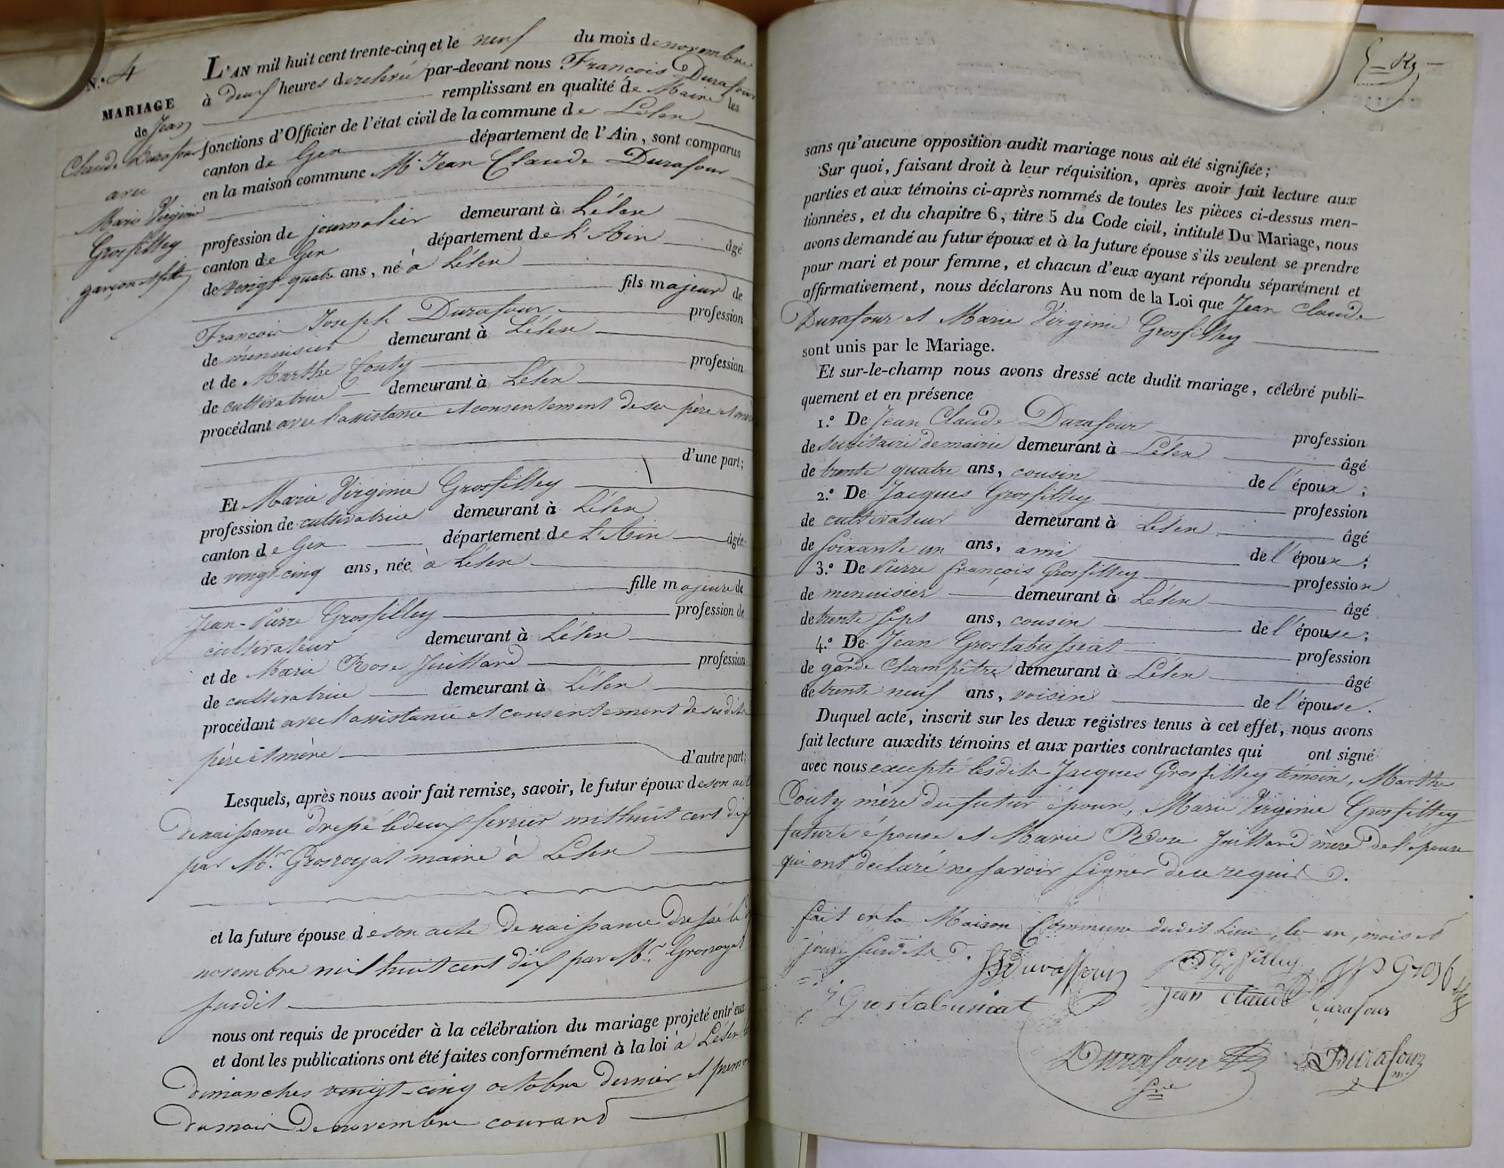 N.° 4
MARIAGE
de Jean
Claude Durafour
avec
Marie Virginie
Grosfilley
garçon et fille
L'AN mil huit cent trente-cinq et le neuf du mois de novembre
à deux heures de relevé par-devant nous François Durafour
remplissant en qualité de Maire les
fonctions d'Officier de l'état civil de la commune de Lélex
canton de Gex département de l'Ain, sont comparus
en la maison commune Mr Jean Claude Durafour
profession de journalier demeurant à Lélex
canton de Gex département de l'Ain âgé
de vingt quatre ans, né à Lélex
fils majeur de
François Joseph Durafour profession
de menuisier demeurant à Lélex
et de Marthe Couty profession
de cultivatrice demeurant à Lélex
procédant avec l'assistance et consentement de ses père et mère
d'une part;
Et Marie Virginie Grosfilley
profession de cultivatrice demeurant à Lélex
canton de Gex département de l'Ain âgée
de vingt cinq ans, née à Lélex
fille majeure de
Jean-Pierre Grosfilley profession de
cultivateur demeurant à Lélex
et de Marie Rose Juillard profession
de cultivatrice demeurant à Lélex
procédant avec l'assistance et consentement de sesdits
père et mère d'autre part;
Lesquels, après nous avoir fait remise, savoir, le futur époux de son acte
de naissance dressé le deux fevrier mil huit cent dix
par Mr. Grosroyat maire à Lélex
et la future épouse de son acte de naissance dressé le
novembre mil huit cent dix par Mr. Grosroyat
susdit
nous ont requis de procéder à la célébration du mariage projeté entr'eux
et dont les publications ont été faites conformément à la loi à Lélex les
dimanches vingt-cinq octobre dernier et premier
du mois de novembre courand
sans qu'aucune opposition audit mariage nous ait été signifiée;
Sur quoi, faisant droit à leur réquisition, après avoir fait lecture aux
parties et aux témoins ci-après nommés de toutes les pièces ci-dessus men-
tionnées, et du chapitre 6, titre 5 du Code civil, intitulé Du Mariage, nous
avons demandé au futur époux et à la future épouse s'ils veulent se prendre
pour mari et pour femme, et chacun d'eux ayant répondu séparément et
affirmativement, nous déclarons Au nom de la Loi que Jean Claude
Durafour et Marie Virginie Grosfilley
sont unis par le Mariage.
Et sur-le-champ nous avons dressé acte dudit mariage, célébré publi-
quement et en présence
1.° De Jean Claude Durafour profession
de secrétaire de mairie demeurant à Lélex âgé
de trente quatre ans, cousin de l'époux;
2.° De Jacques Grosfilley profession
de cultivateur demeurant à Lélex âgé
de soixante un ans, ami de l'époux;
3.° De Pierre François Grosfilley profession
de menuisier demeurant à Lélex âgé
de trente sept ans, cousin de l'épouse;
4.° De Jean Grostabussiat profession
de garde champêtre demeurant à Lélex âgé
de trente neuf ans, voisin de l'épouse.
Duquel acte, inscrit sur les deux registres tenus à cet effet, nous avons
fait lecture auxdits témoins et aux parties contractantes qui ont signé
avec nous excepté lesdits Jacques Grosfilley témoin, Marthe
Couty mère du futur époux, Marie Virginie Grosfilley
future épouse et Marie Rose Juillard mère de l'épouse
qui ont déclaré ne savoir signer de ce requis.
fait en la Maison Commune dudit Lieu, les an, mois et
jour susdits.
Grostabussiat
Jean Claude Durafour
Durafour
Durafour